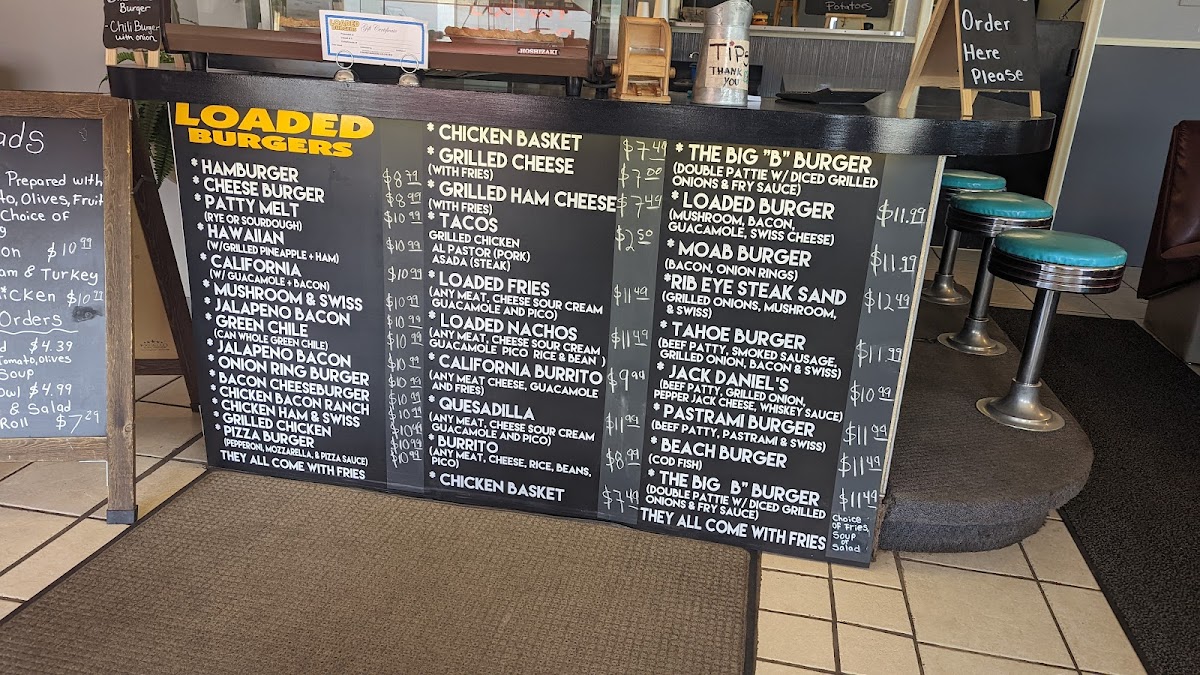 Burger
- Chili Burger
with onion
LOADED
BURGERS
Gift Certificate
HOSHIZAKI
TIPS
THANK
YOU
Potatoes
Order
Here
Please
ads
Prepared with
to, Olives, Fruit
Choice of
g
on $10.99
am & Turkey
icken $10
Orders
d $4.39
Tomato, olives
Soup
owl $4.99
& Salad
Roll $7.29
LOADED
BURGERS
* HAMBURGER $8.79
* CHEESE BURGER $8.99
* PATTY MELT $10.99
(RYE OR SOURDOUGH)
* HAWAIIAN $10.99
(W/GRILLED PINEAPPLE + HAM)
* CALIFORNIA $10.99
(W/ GUACAMOLE + BACON)
* MUSHROOM & SWISS $10.99
* JALAPENO BACON $10.99
* GREEN CHILE $10.99
(CAN WHOLE GREEN CHILE)
* JALAPENO BACON $10.99
* ONION RING BURGER $10.99
* BACON CHEESEBURGER $10.99
* CHICKEN BACON RANCH $10.99
* CHICKEN HAM & SWISS $10.99
* GRILLED CHICKEN $10.99
* PIZZA BURGER $10.99
(PEPPERONI, MOZZARELLA, & PIZZA SAUCE)
THEY ALL COME WITH FRIES
* CHICKEN BASKET $7.49
* GRILLED CHEESE $7.00
(WITH FRIES)
* GRILLED HAM CHEESE $7.49
(WITH FRIES)
* TACOS $2.50
GRILLED CHICKEN
AL PASTOR (PORK)
ASADA (STEAK)
* LOADED FRIES $11.49
(ANY MEAT, CHEESE SOUR CREAM
GUACAMOLE AND PICO)
* LOADED NACHOS $11.49
(ANY MEAT, CHEESE SOUR CREAM
GUACAMOLE PICO RICE & BEAN )
* CALIFORNIA BURRITO $9.99
(ANY MEAT CHEESE, GUACAMOLE
AND FRIES)
* QUESADILLA $11.99
(ANY MEAT, CHEESE SOUR CREAM
GUACAMOLE AND PICO)
* BURRITO $8.99
(ANY MEAT, CHEESE, RICE, BEANS,
PICO)
* CHICKEN BASKET $7.49
* THE BIG "B" BURGER
(DOUBLE PATTIE W/ DICED GRILLED
ONIONS & FRY SAUCE)
* LOADED BURGER $11.99
(MUSHROOM, BACON,
GUACAMOLE, SWISS CHEESE)
* MOAB BURGER $11.99
(BACON, ONION RINGS)
*RIB EYE STEAK SAND $12.49
(GRILLED ONIONS, MUSHROOM,
& SWISS)
* TAHOE BURGER $11.99
(BEEF PATTY, SMOKED SAUSAGE,
GRILLED ONION, BACON & SWISS)
* JACK DANIEL'S $10.99
(BEEF PATTY, GRILLED ONION,
PEPPER JACK CHEESE, WHISKEY SAUCE)
* PASTRAMI BURGER $11.99
(BEEF PATTY, PASTRAMI & SWISS)
* BEACH BURGER $11.49
(COD FISH)
* THE BIG B" BURGER $11.49
(DOUBLE PATTIE W/ DICED GRILLED
ONIONS & FRY SAUCE)
THEY ALL COME WITH FRIES
Choice
of Fries,
Soup
or
Salad